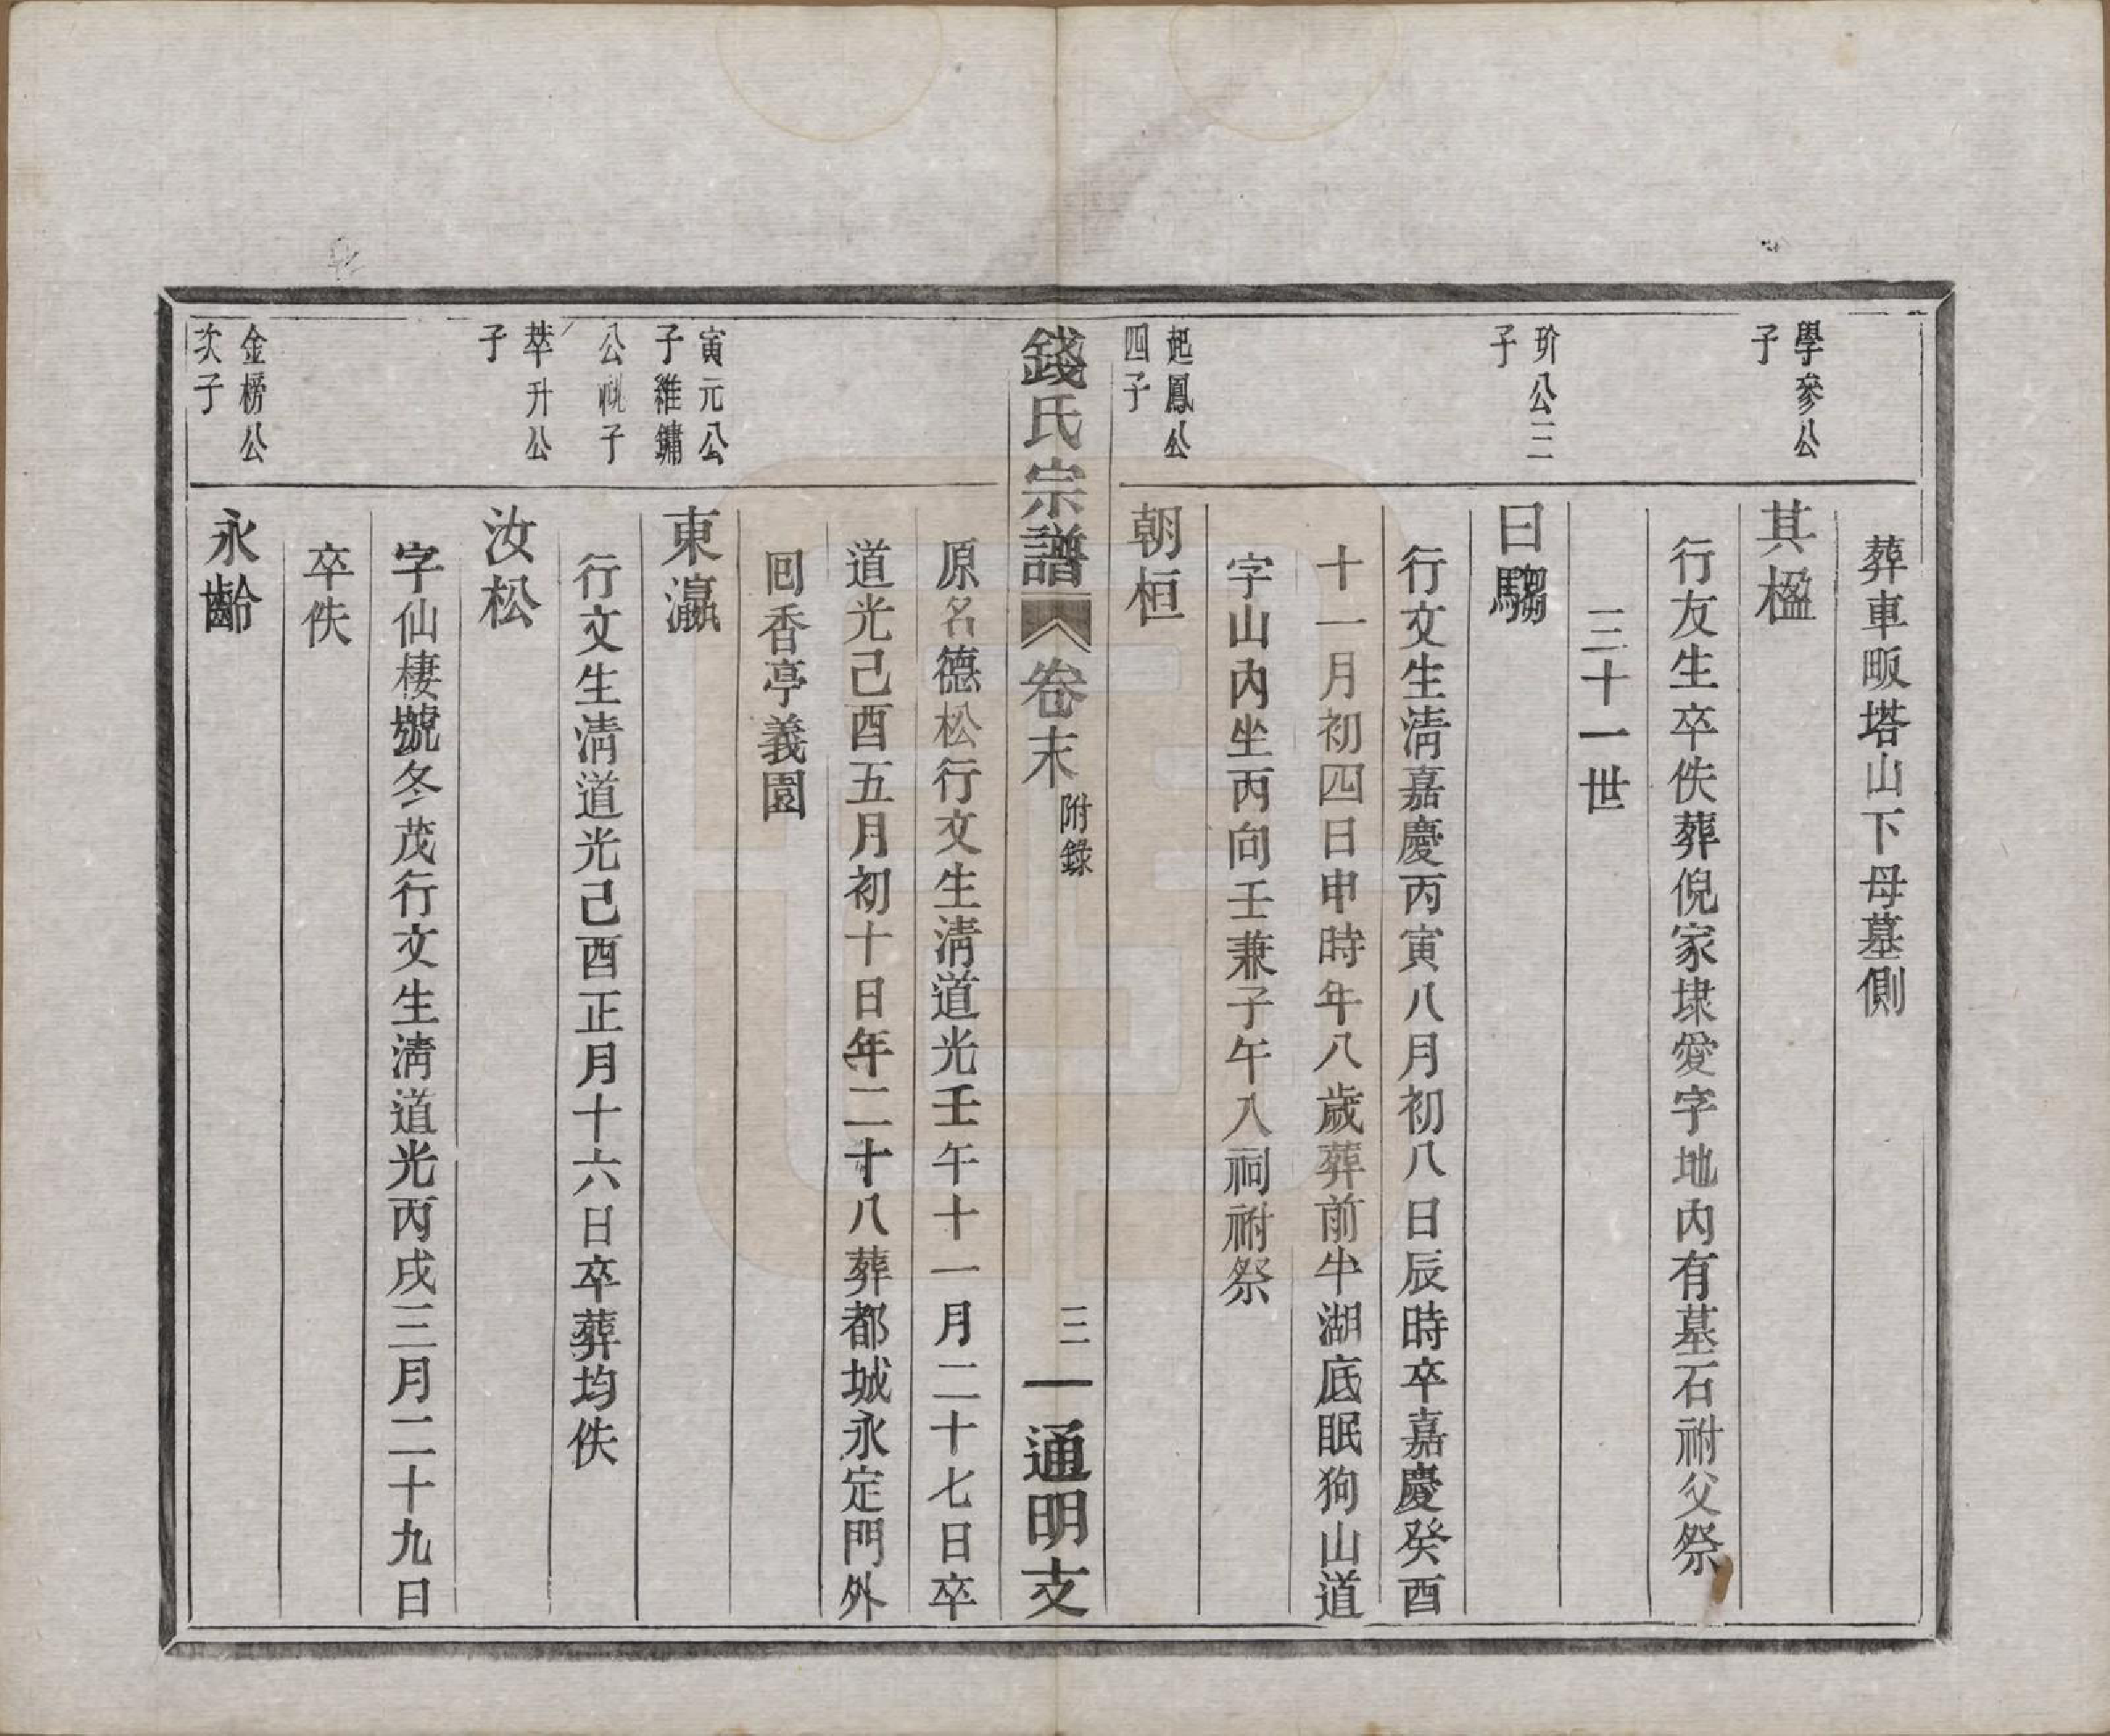 葬車畈塔山下母墓側
學參公
子
其楹
行友生卒佚葬倪家埭愛字地內有墓石祔父祭
三十一世
玠公三
子
曰騶
行文生淸嘉慶丙寅八月初八日辰時卒嘉慶癸酉
十一月初四日申時年八歲葬前牛湖底眠狗山道
字山內坐丙向壬兼子午入祠祔祭
起鳳公
四子
朝桓
錢氏宗譜 卷末 附錄 三 通明支
原名德松行文生淸道光壬午十一月二十七日卒
道光己酉五月初十日年二十八葬都城永定門外
回香亭義園
寅元公
子維鏞
公祧子
東瀛
行文生淸道光己酉正月十六日卒葬均佚
萃升公
子
汝松
字仙棲號冬茂行文生淸道光丙戌三月二十九日
卒佚
金榜公
次子
永齡